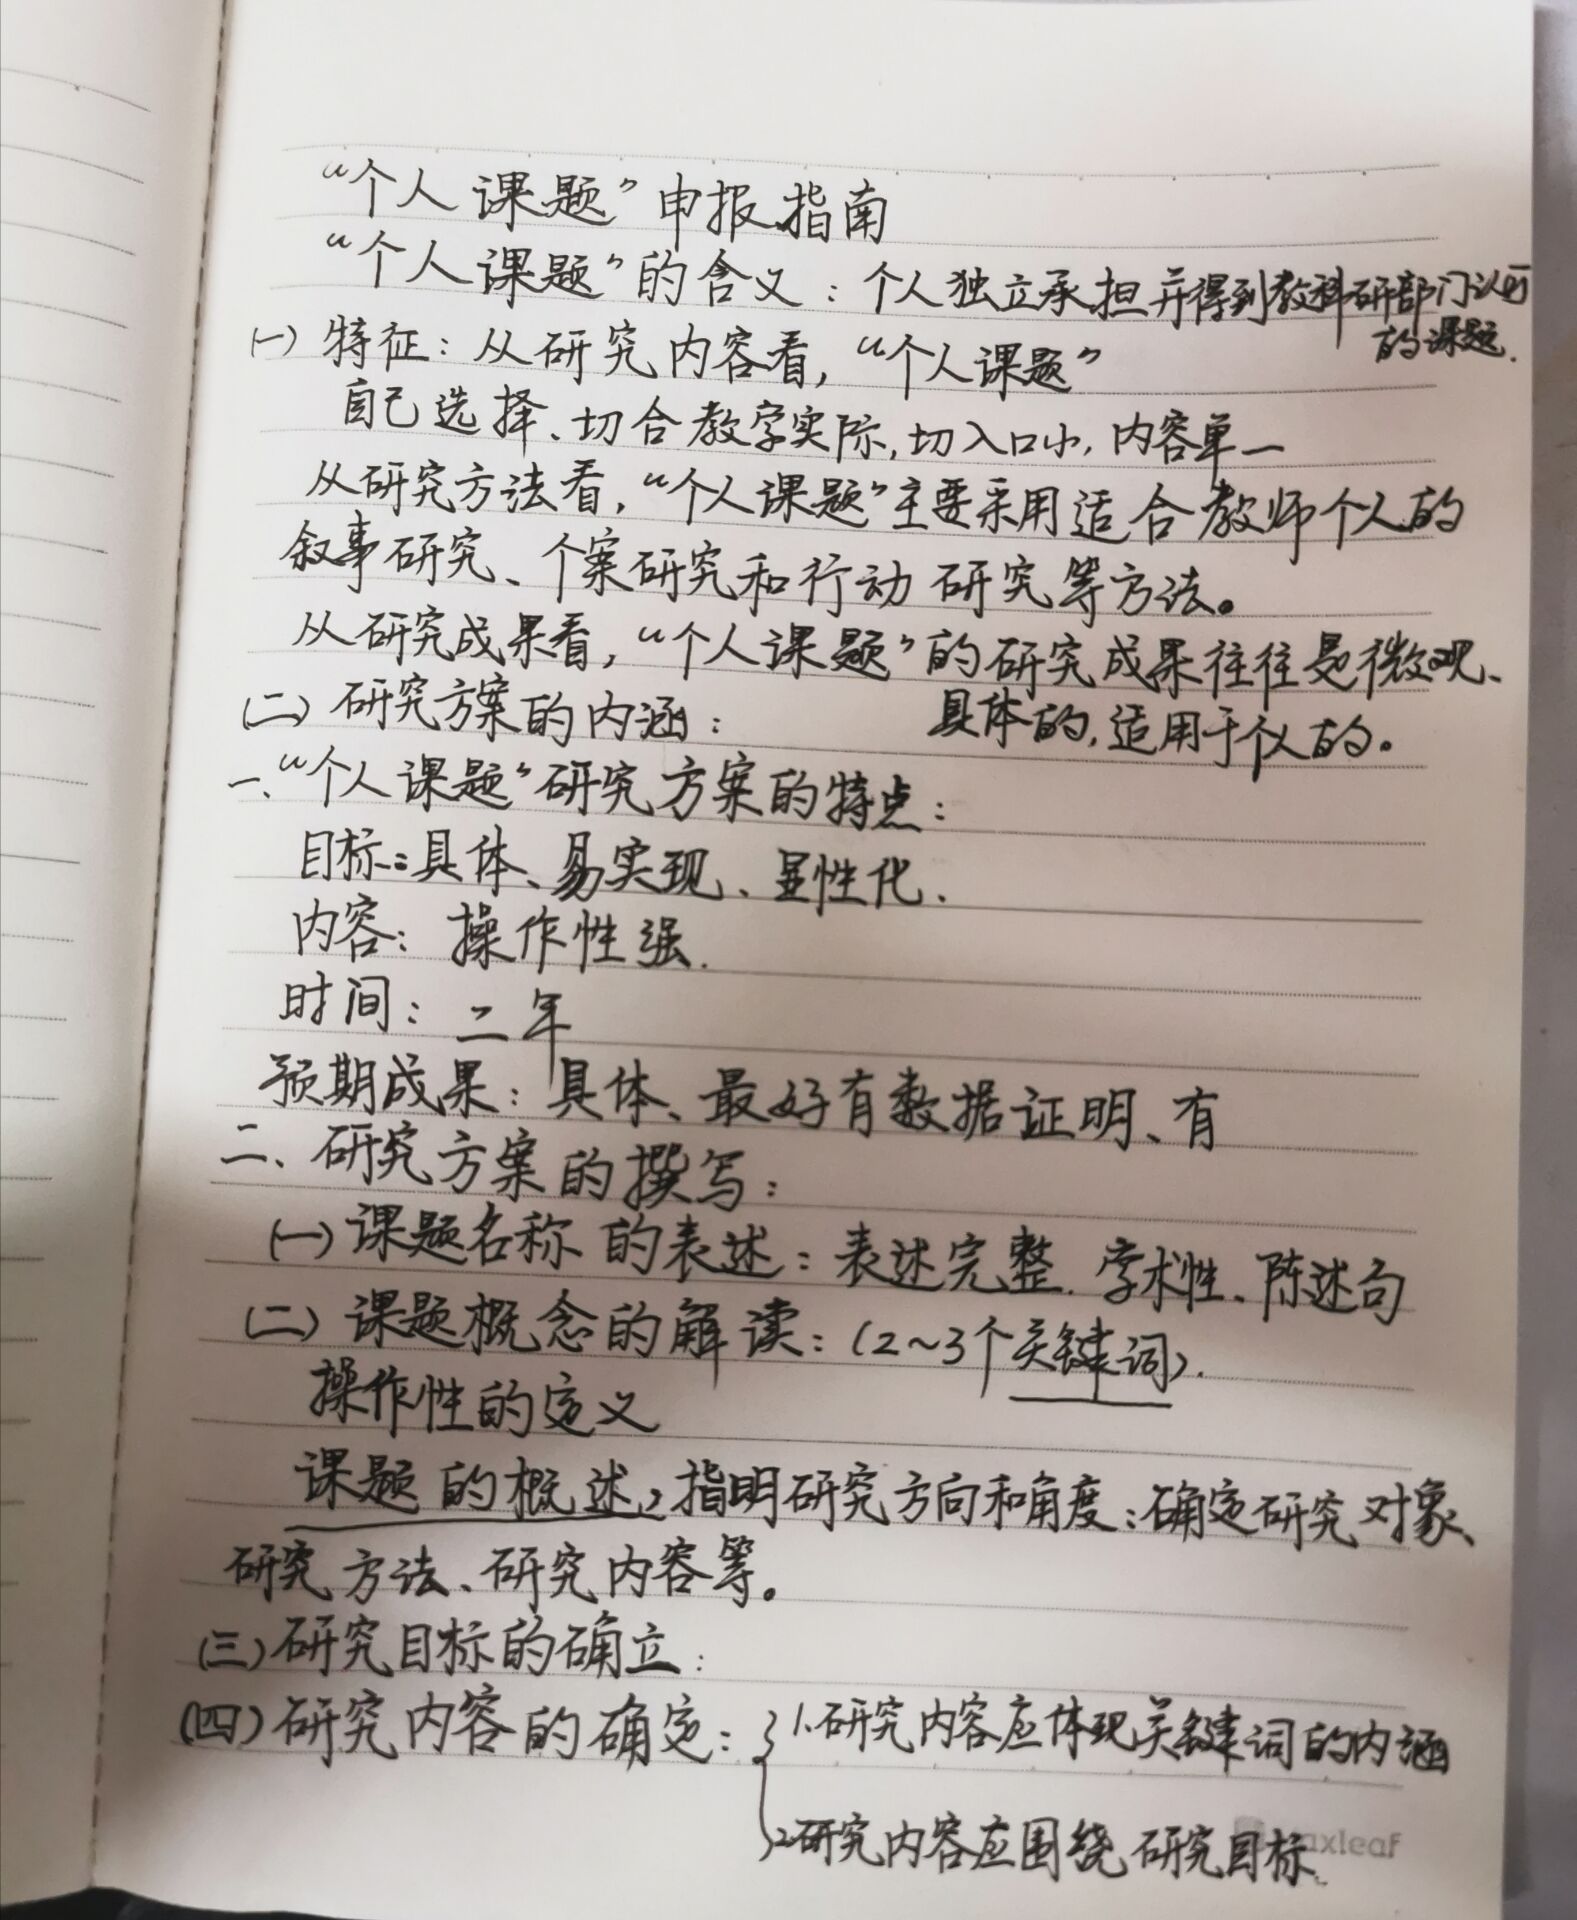 “个人课题”申报指南
“个人课题”的含义：个人独立承担并得到教科研部门认可
的课题.
(一) 特征：从研究内容看，“个人课题”
自己选择、切合教学实际, 切入口小, 内容单一
从研究方法看，“个人课题”主要采用适合教师个人的
叙事研究、个案研究和行动研究等方法。
从研究成果看，“个人课题”的研究成果往往是微观、
具体的, 适用于个人的。
(二) 研究方案的内涵：
一、“个人课题”研究方案的特点：
目标：具体、易实现、显性化.
内容：操作性强.
时间：二年
预期成果：具体、最好有数据证明、有
二、研究方案的撰写：
(一) 课题名称的表述：表述完整. 学术性、陈述句
(二) 课题概念的解读：(2~3个关键词).
操作性的定义
课题的概述, 指明研究方向和角度；确定研究对象、
研究方法、研究内容等。
(三) 研究目标的确立：
(四) 研究内容的确定：1.研究内容应体现关键词的内涵
2.研究内容应围绕研究目标.